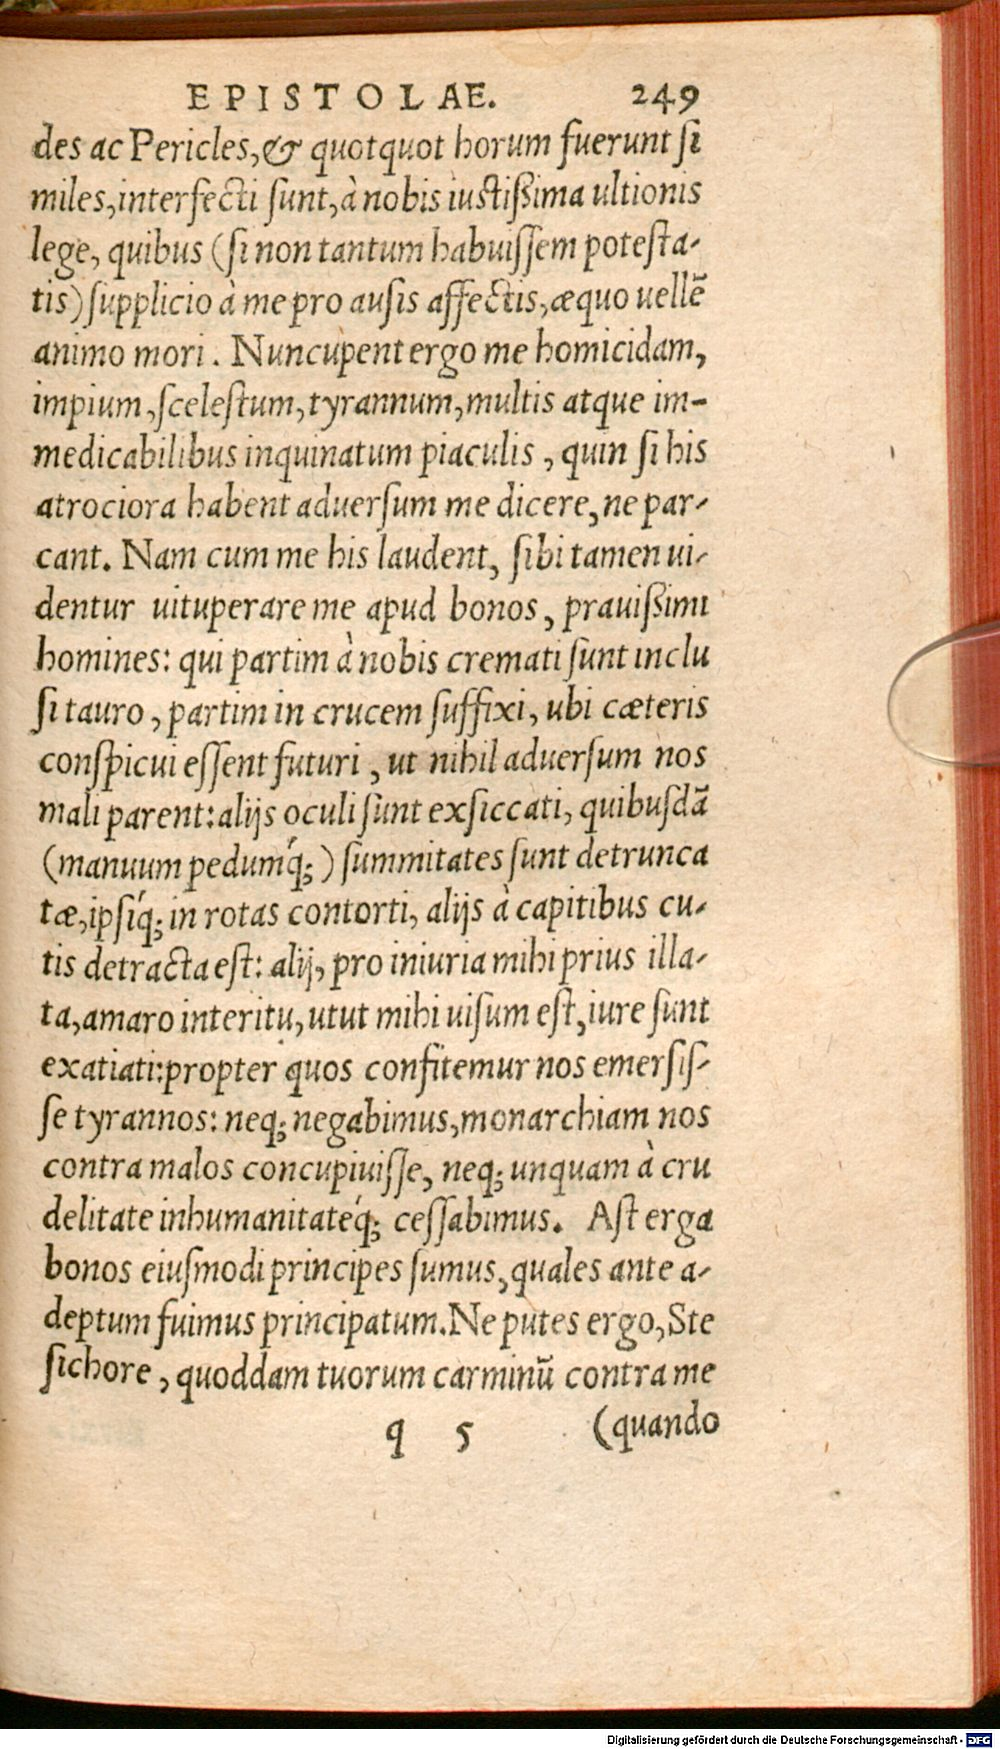 EPISTOLAE. 249
des ac Pericles, & quotquot horum fuerunt si
miles, interfecti sunt, à nobis iustißima ultionis
lege, quibus (si non tantum habuissem potesta-
tis) supplicio à me pro ausis affectis, æquo uellẽ
animo mori. Nuncupent ergo me homicidam,
impium, scelestum, tyrannum, multis atque im-
medicabilibus inquinatum piaculis, quin si his
atrociora habent aduersum me dicere, ne par-
cant. Nam cum me his laudent, sibi tamen ui-
dentur uituperare me apud bonos, prauißimi
homines: qui partim à nobis cremati sunt inclu
si tauro, partim in crucem suffixi, ubi cæteris
conspicui essent futuri, ut nihil aduersum nos
mali parent: alijs oculi sunt exsiccati, quibusdã
(manuum pedumq́;) summitates sunt detrunca
tæ, ipsiq́; in rotas contorti, alijs à capitibus cu-
tis detracta est: alij, pro iniuria mihi prius illa-
ta, amaro interitu, utut mihi uisum est, iure sunt
exatiati: propter quos confitemur nos emersis-
se tyrannos: neq; negabimus, monarchiam nos
contra malos concupiuisse, neq; unquam à cru
delitate inhumanitateq́; cessabimus. Ast erga
bonos eiusmodi principes sumus, quales ante a-
deptum fuimus principatum. Ne putes ergo, Ste
sichore, quoddam tuorum carminũ contra me
q 5 (quando
Digitalisierung gefördert durch die Deutsche Forschungsgemeinschaft - DFG